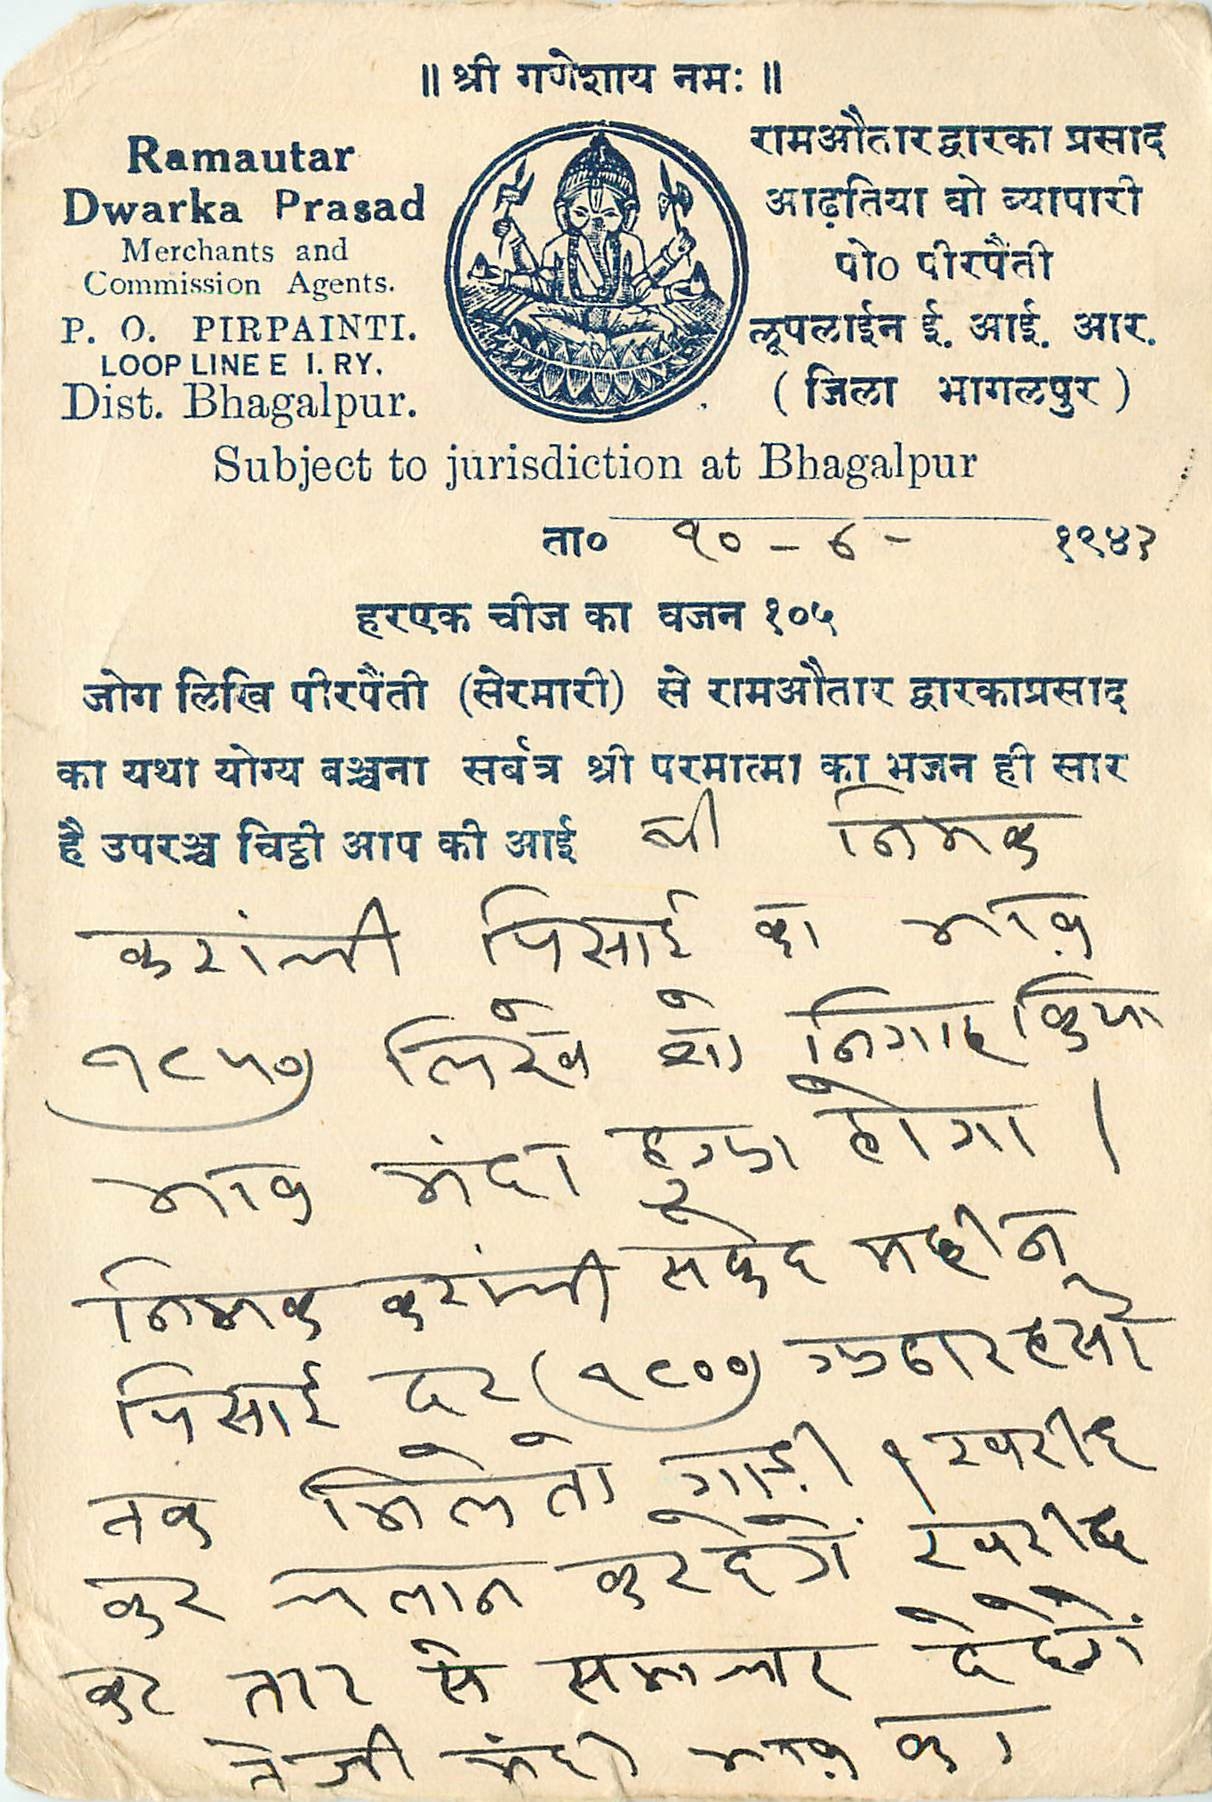 ॥ श्री गणेशाय नमः ॥
Ramautar
Dwarka Prasad
Merchants and
Commission Agents.
P. O. PIRPAINTI.
LOOP LINE E I. RY.
Dist. Bhagalpur.
रामऔतार द्वारका प्रसाद
आढ़तिया वो व्यापारी
पो० पीरपैंती
लूपलाईन ई. आई. आर.
( जिला भागलपुर )
Subject to jurisdiction at Bhagalpur
ता० १०-४- १९४२
हरएक चीज का वजन १०५
जोग लिखि पीरपैंती (सेरमारी) से रामऔतार द्वारकाप्रसाद
का यथा योग्य बञ्चना सर्बत्र श्री परमात्मा का भजन ही सार
है उपरञ्च चिट्ठी आप की आई निमक
करांची पिसाई का भाव
१८५०) लिखे सो निगाह किया
भाव मंदा हुआ होगा।
निमक करांची सफेद महीन
पिसाई दर (१८००) अठारहसौ
तक मिले तो गाड़ी १ खरीद
कर चलान कर देगें खरीद
कर तार से समाचार दे देगें
तेजी मंदी भाव का